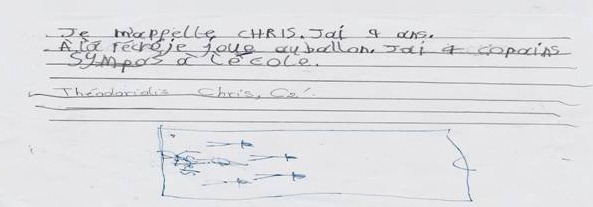 Je m'appelle CHRIS. Jai 9 ans.
À la récré je joue au ballon. Jai 4 copains
sympas à lécole.
Théodoridis Chris, Ce